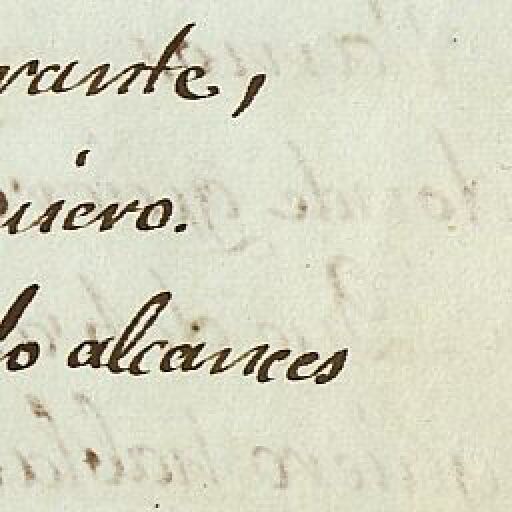 rante,
uiero.
lo alcances